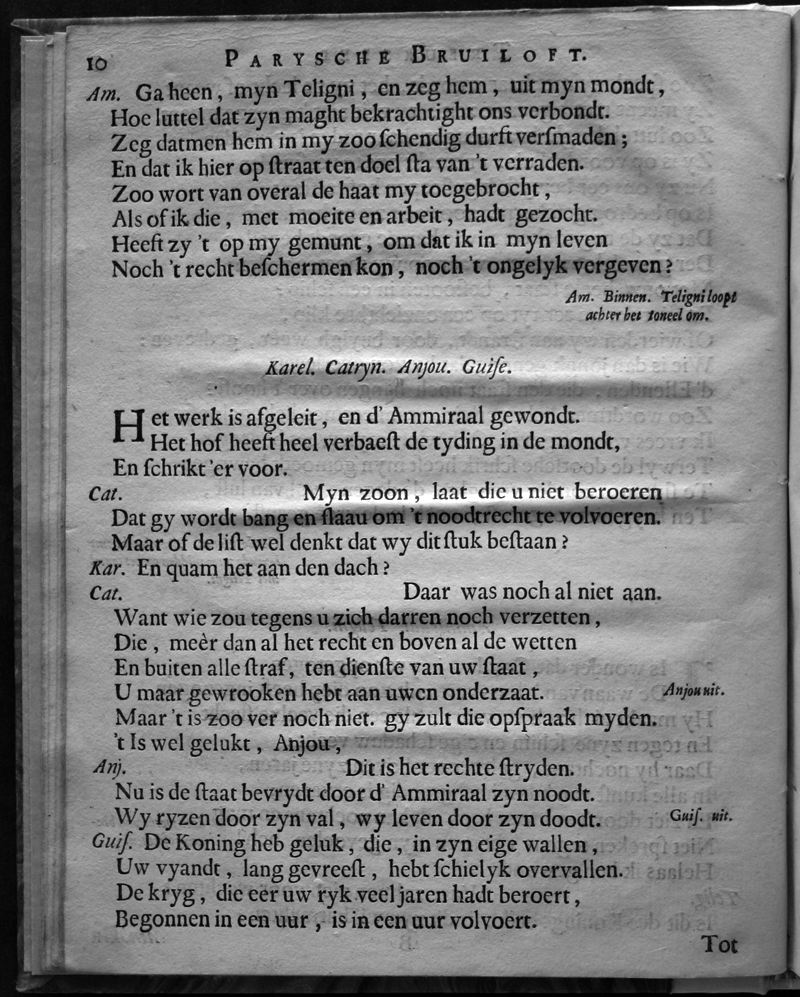 10 PARYSCHE BRUILOFT.
Am. Ga heen, myn Teligni, en zeg hem, uit myn mondt,
Hoe luttel dat zyn maght bekrachtight ons verbondt.
Zeg datmen hem in my zoo ſchendig durft verſmaden;
En dat ik hier op ſtraat ten doel ſta van 't verraden.
Zoo wort van overal de haat my toegebrocht,
Als of ik die, met moeite en arbeit, hadt gezocht.
Heeft zy 't op my gemunt, om dat ik in myn leven
Noch 't recht beſchermen kon, noch 't ongelyk vergeven?
Am. Binnen. Teligni loopt
achter het toneel om.
Karel. Catryn. Anjou. Guiſe.
Het werk is afgeleit, en d' Ammiraal gewondt.
Het hof heeft heel verbaeſt de tyding in de mondt,
En ſchrikt 'er voor.
Cat. Myn zoon, laat die u niet beroeren
Dat gy wordt bang en flaau om 't noodtrecht te volvoeren.
Maar of de liſt wel denkt dat wy dit ſtuk beſtaan?
Kar. En quam het aan den dach?
Cat. Daar was noch al niet aan.
Want wie zou tegens u zich darren noch verzetten,
Die, meèr dan al het recht en boven al de wetten
En buiten alle ſtraf, ten dienſte van uw ſtaat,
U maar gewrooken hebt aan uwen onderzaat. Anjou uit.
Maar 't is zoo ver noch niet. gy zult die opſpraak myden.
't Is wel gelukt, Anjou,
Anj. Dit is het rechte ſtryden.
Nu is de ſtaat bevrydt door d' Ammiraal zyn noodt.
Wy ryzen door zyn val, wy leven door zyn doodt. Guiſ. uit.
Guiſ. De Koning heb geluk, die, in zyn eige wallen,
Uw vyandt, lang gevreeſt, hebt ſchielyk overvallen.
De kryg, die eer uw ryk veel jaren hadt beroert,
Begonnen in een uur, is in een uur volvoert.
Tot